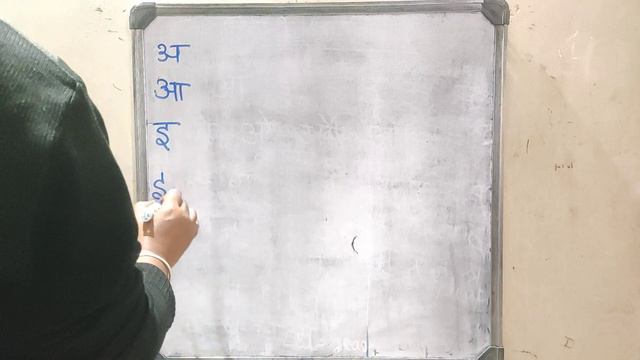 अ
आ
इ
ई